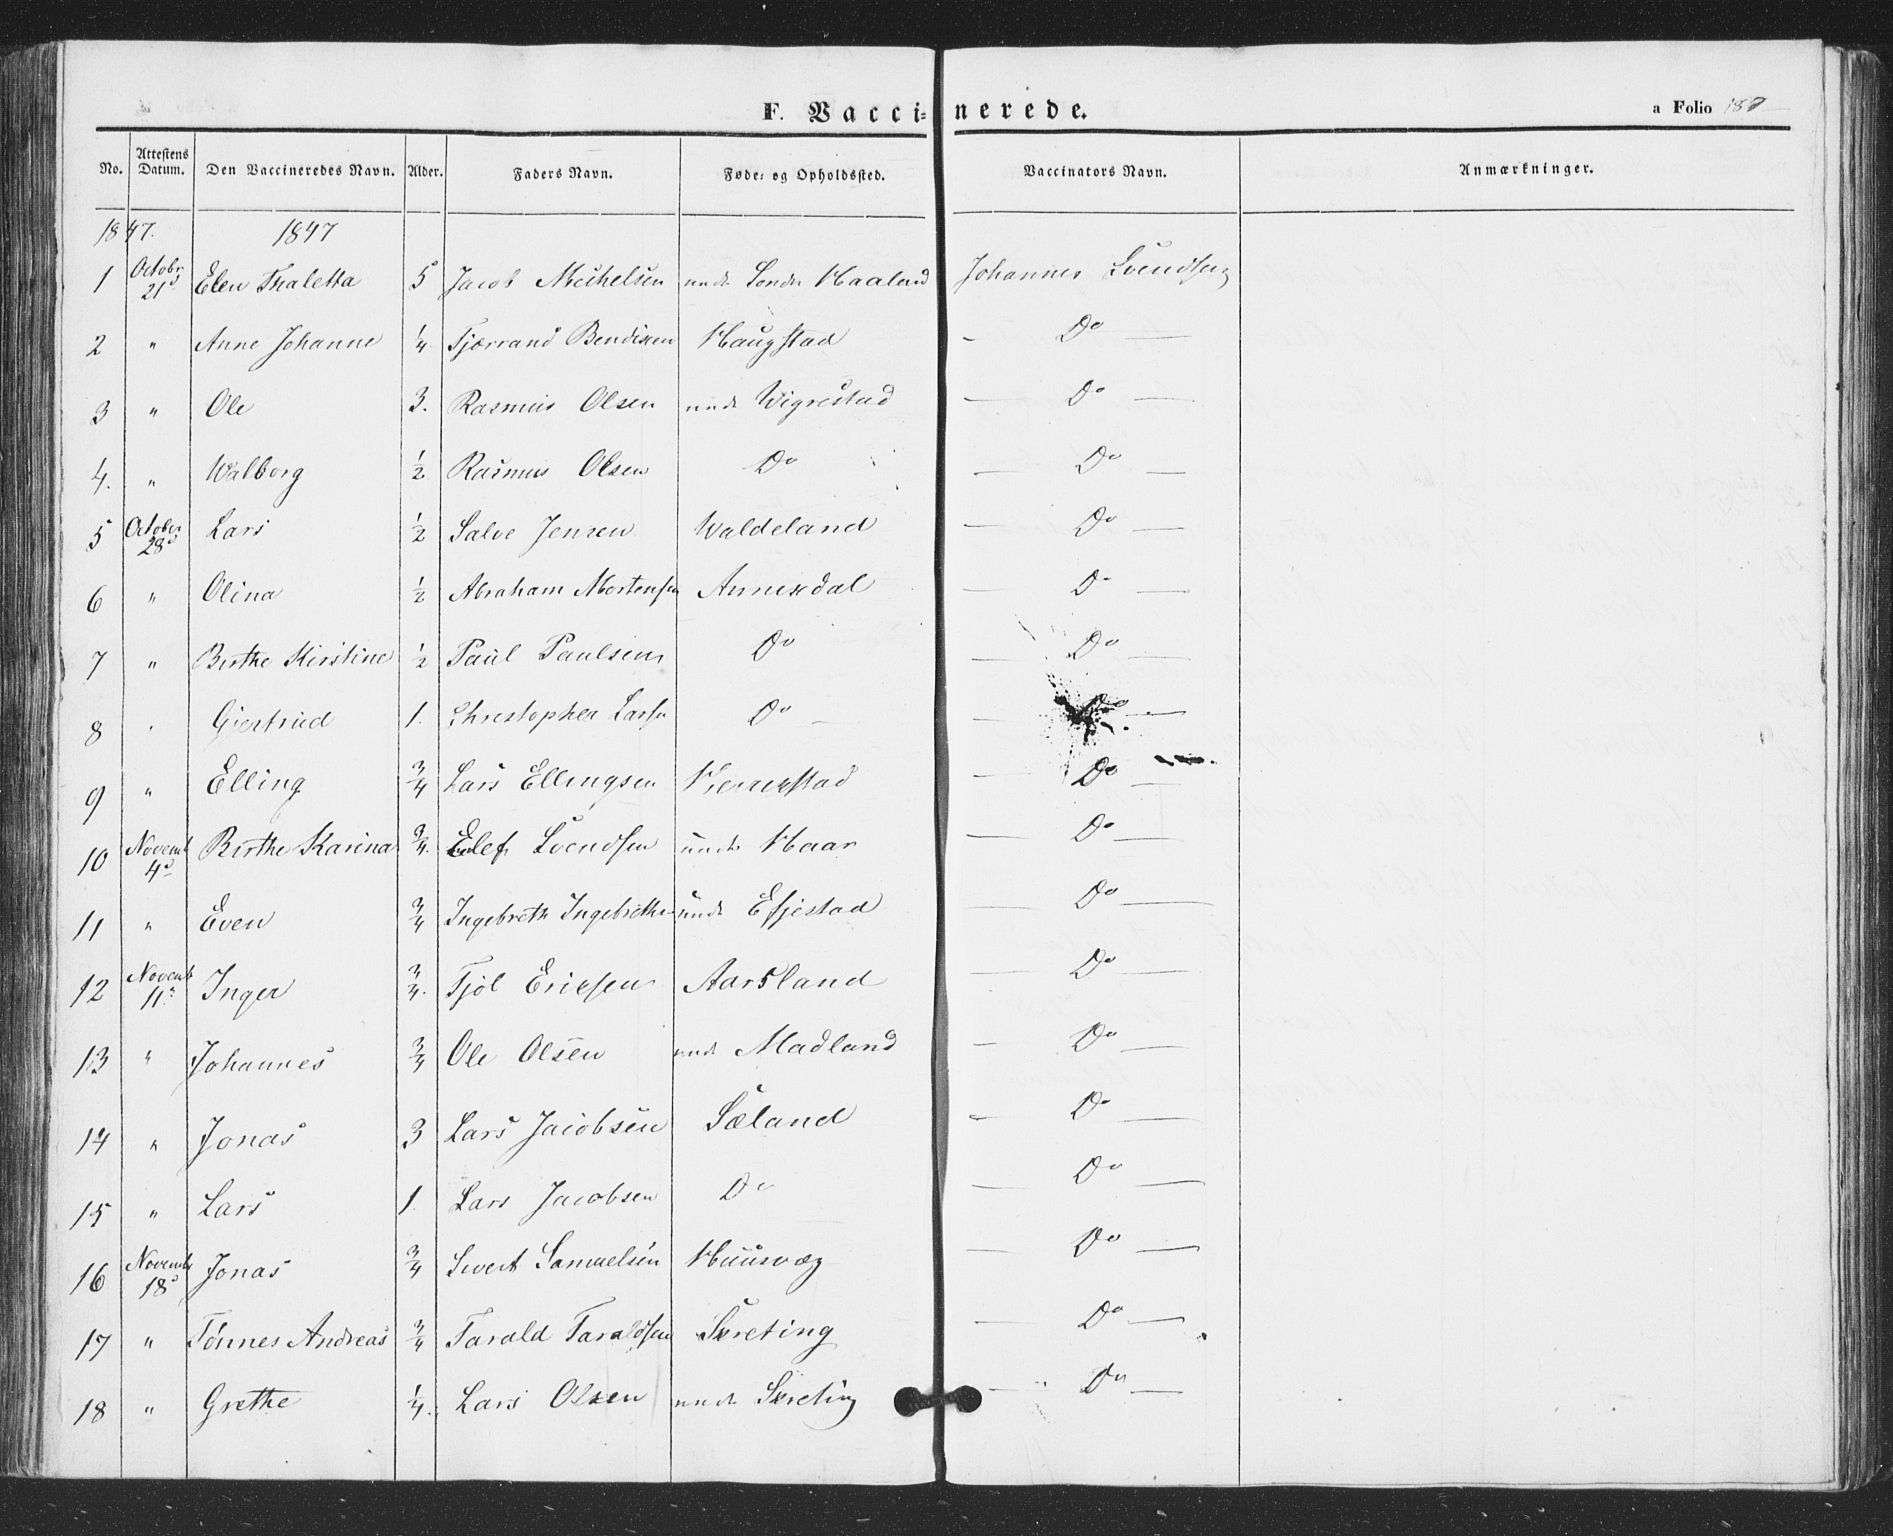 F. Vaccinerede.
a Folio 187
No. Attestens Datum. Den Vaccineredes Navn. Alder. Faders Navn. Føde- og Opholdssted. Vaccinators Navn. Anmærkninger.
1847. 1847
1 Octobr 21d Elen Thaletta 5 Jacob Michelsen unde Søndr Haaland Johannes Svendsen
2 " Anne Johanne 1/4 Tjærrand Bendixen Haugstad - Do -
3 " Ole 3. Rasmus Olsen unde Wigrestad - Do -
4. " Walborg 1/2 Rasmus Olsen Do - Do -
5 October 28d Lars 1/2 Salve Jensen Waldeland - Do -
6 " Olina 1/2 Abraham Mortensen Annexdal - Do -
7 " Birthe Kirstine 1/2 Paul Paulsen Do - Do -
8 " Giertrud 1. Christopher Larsn Do - - Do -
9 " Elling 3/4 Lars Ellingsen - Do -
10 Novemb 4d Birthe Karina 3/4. Elef Svendsen unde Haar - Do -
11 " Even 3/4 Ingebreth Ingebreths unde Efjestad - Do -
12 Novemb 11d Inger 3/4. Tjøl Ericsen Aarsland - Do -
13 " Johannes 3/4 Ole Olsen unde Madland - Do -
14 " Jonas 3 Lars Jacobsen Sæland - Do -
15 " Lars 1. Lars Jacobsen Do - Do -
16 Novemb 18d Jonas 3/4 Sivert Samuelsen Huusvæg - Do -
17 " Tønnes Andreas 3/4 Tarald Taraldsen Skreting - Do -
18 " Grethe 1/4. Lars Olsen unde Skreting - Do -